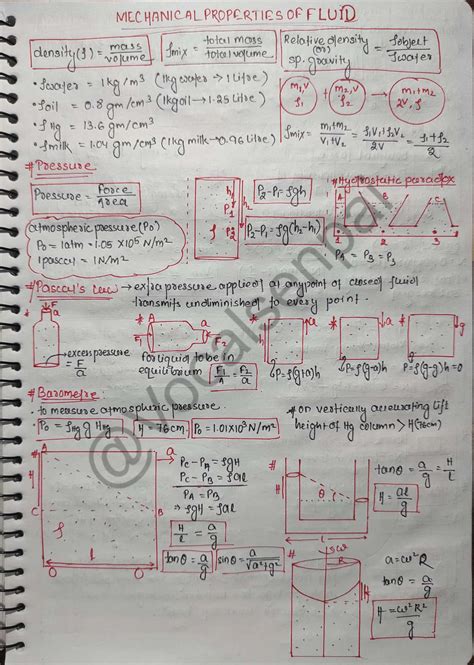 MECHANICAL PROPERTIES OF FLUID
density(ρ) = mass/volume
ρmix = total mass/total volume
Relative density (or) sp. gravity = ρobject/ρwater
• ρwater = 1 kg/m³ (1kg water → 1 litre)
• ρoil = 0.8 gm/cm³ (1kg oil → 1.25 litre)
• ρHg = 13.6 gm/cm³
• ρmilk = 1.04 gm/cm³ (1kg milk → 0.96 litre)
m₁,V ρ₁ + m₂,V ρ₂ → m₁+m₂ 2V, ρ
ρmix = m₁+m₂/V₁+V₂ = ρ₁V₁+ρ₂V₂/2V = ρ₁+ρ₂/2
# Pressure
Pressure = Force/area
atmospheric pressure (P₀)
P₀ = 1atm = 1.05 X10⁵ N/m²
1 pascal = 1N/m²
h₁ P₁ h₂ P₂ ρ
P₂-P₁ = ρgh
P₂-P₁ = ρg(h₂-h₁)
# Hydrostatic paradox
A B C
1 2 3
P₁ = P₂ = P₃
# Pascal's law → extra pressure applied at any point of closed fluid
transmits undiminished to every point.
F a
excess pressure = F/a
A F₁ a F₂
for liquid to be in equilibrium F₁/A = F₂/a
h ↑a P=ρ(g+a)h
↓a P=ρ(g-a)h
↓g P=ρ(g-g)h=0
# Barometre
→ to measure atmospheric pressure.
P₀ = ρHg g HHg
H = 76cm
P₀ = 1.01X10⁵ N/m²
* on vertically accelerating lift
height of Hg column > H(76cm)
A H C ρ B l → a
PC - PA = ρgH
PC - PB = ρal
PA = PB
⇒ ρgH = ρal
H/l = a/g
tanθ = a/g
sinθ = a/√a²+g²
H θ l
tanθ = a/g = H/l
H = al/g
# ω R H
a = ω²R
tanθ = a/g
H = ω²R²/g
@vocalsonpal